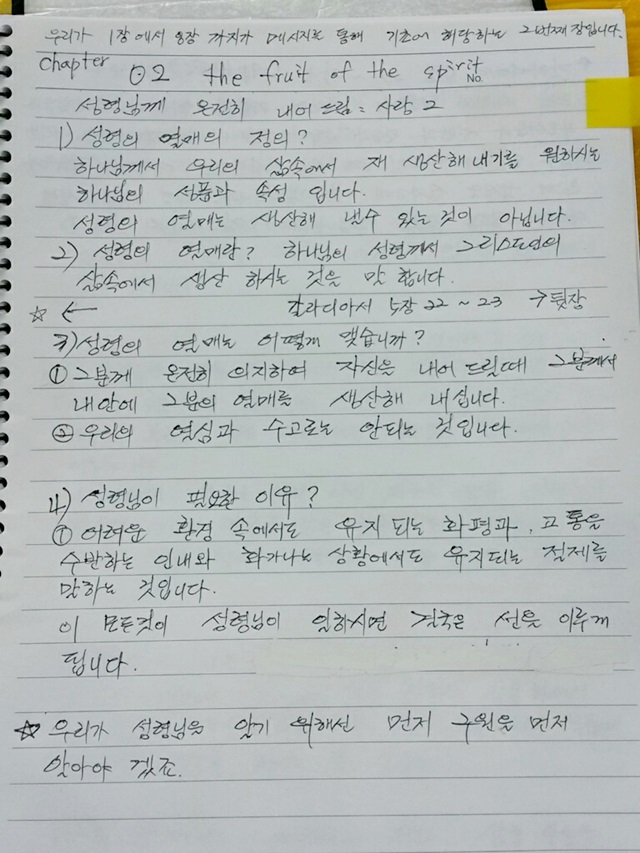 우리가 1장에서 8장 까지가 메시지를 통해 기초에 해당하는 2번째 장입니다.
chapter 02 the fruit of the spirit
No.
성령님께 온전히 내어 드림 : 사랑 2
1) 성령의 열매의 정의?
하나님께서 우리의 삶속에서 재 생산해 내기를 원하시는
하나님의 성품과 속성 입니다.
성령의 열매는 생산해 낼수 있는 것이 아닙니다.
2) 성령의 열매란? 하나님의 성령께서 그리스도인의
삶속에서 생산 하시는 것을 말 합니다.
☆ ← 갈라디아서 5장 22 ~ 23 → 뒷장
3) 성령의 열매는 어떻게 맺습니까?
① 그분께 온전히 의지하여 자신을 내어 드릴때 그분께서
내안에 그분의 열매를 생산해 내십니다.
② 우리의 열심과 수고로는 안되는 것입니다.
4) 성령님이 필요할 이유?
① 어려운 환경 속에서도 유지 되는 화평과, 고통을
수반하는 인내와 화가나는 상황에서도 유지되는 절제를
말하는 것입니다.
이 모든것이 성령님이 일하시면 결국은 선을 이루게
됩니다.
☆ 우리가 성령님을 알기 위해선 먼저 구원을 먼저
알아야 겠죠.